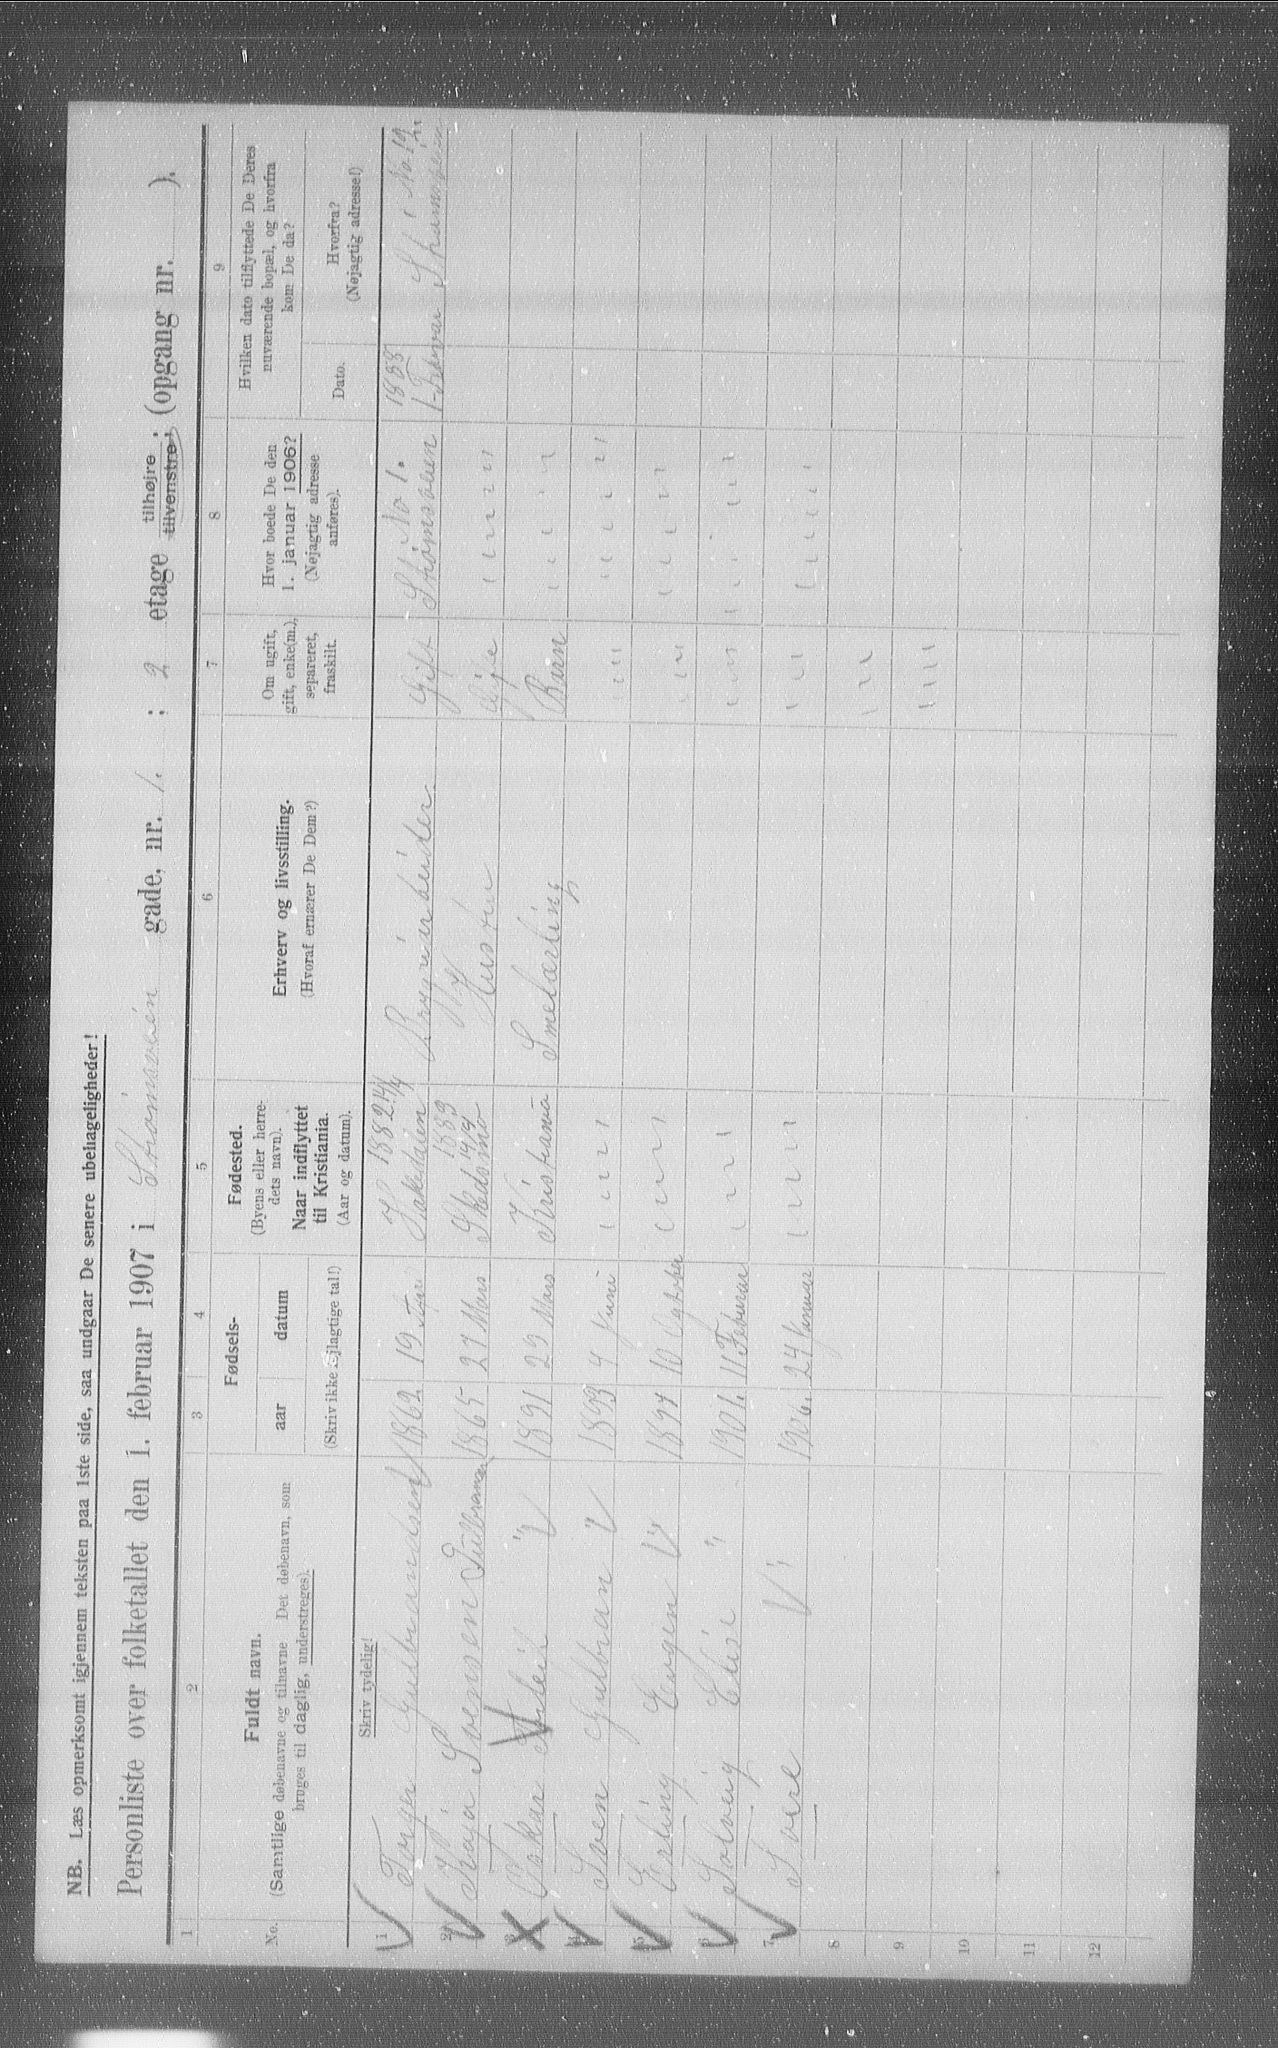 NB. Læs opmerksomt igjennem teksten paa 1ste side, saa undgaar De senere ubehageligheder!
Personliste over folketallet den 1. februar 1907 i Strømsveien gade, nr. 1. ; 2 etage tilhøjre, tilvenstre, (opgang nr. ).
1 2 3 4 5 6 7 8 9
No.
Fuldt navn.
(Samtlige døbenavne og tilnavne Det døbenavn, som
bruges til daglig, understreges).
Skriv tydelig!
Fødsels-
aar datum
(Skriv ikke fejlagtige tal!)
Fødested.
(Byens eller herre-
dets navn).
Naar indflyttet
til Kristiania.
(Aar og datum).
Erhverv og livsstilling.
(Hvoraf ernærer De Dem?)
Om ugift,
gift, enke(m.),
separeret,
fraskilt.
Hvor boede De den
1. januar 1906?
(Nøjagtig adresse
anføres).
Hvilken dato tilflyttede De Deres
nuværende bopæl, og hvorfra
kom De da?
Dato.
Hvorfra?
(Nøjagtig adresse!)
1 Torger Gulbrandsen 1862 19 Hakedalen 1882 Bryggriarbeider Gift Strømsveien No 1. 1888
2 Kaja Svensen Gulbransen 1865 27 Mars Skedsmo 1883 Hustru Gift " " " "
3 Oskar 1891 29 Mars Kristiania Barn " " " "
4 Sven Gulbran " 1893 4 Juni " " " " " " " "
5 Erling Eugen " 1897 10 " " " " " " " "
6 Solveig Elise " 1901 11 Februar " " " " " " " "
7 " 1906. 24 Januar " " " " " " " " "
8 " "
9 " " " "
10
11
12